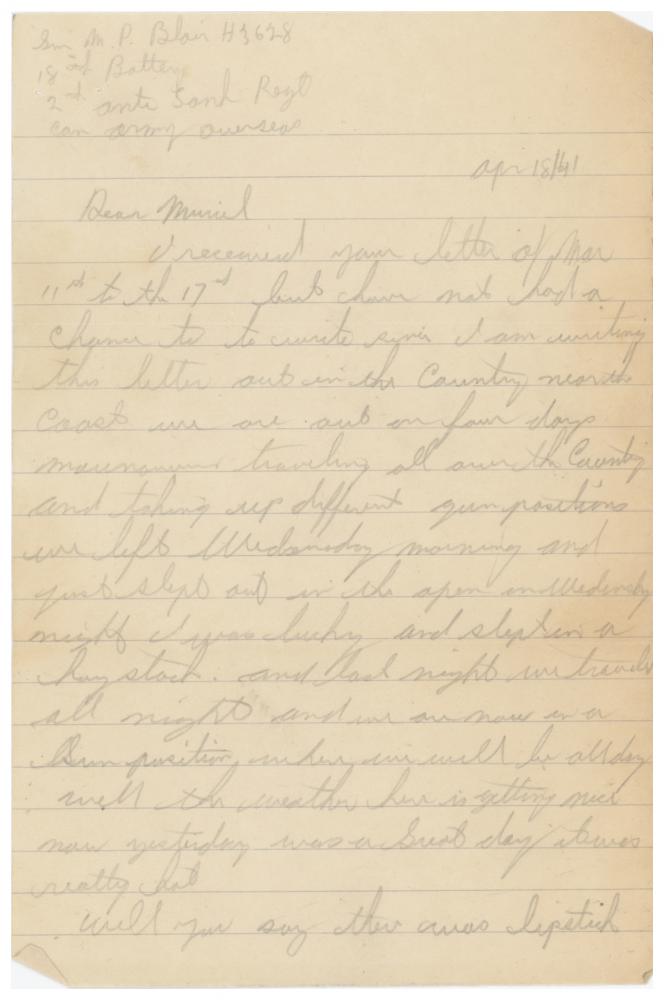 Gnr M. P. Blair H3628
18th Battery
2nd anti Tank Regt
Can army overseas
Apr 18/41
Dear Muriel
I received your letter of Mar
11th to the 17th but have not had a
chance to to write since I am writing
this letter out in the Country near the
Coast we are out on four days
traveling all over the Country
and taking up different gun positions
we left Wednesday morning and
just slept out in the open on Wednesday
night I was lucky and slept in a
haystack. and last night we traveled
all night and we are now in a
Gun position where we will be all day
well the weather here is getting nice
now yesterday was a Great day it was
really hot
Well you say ther was lipstick